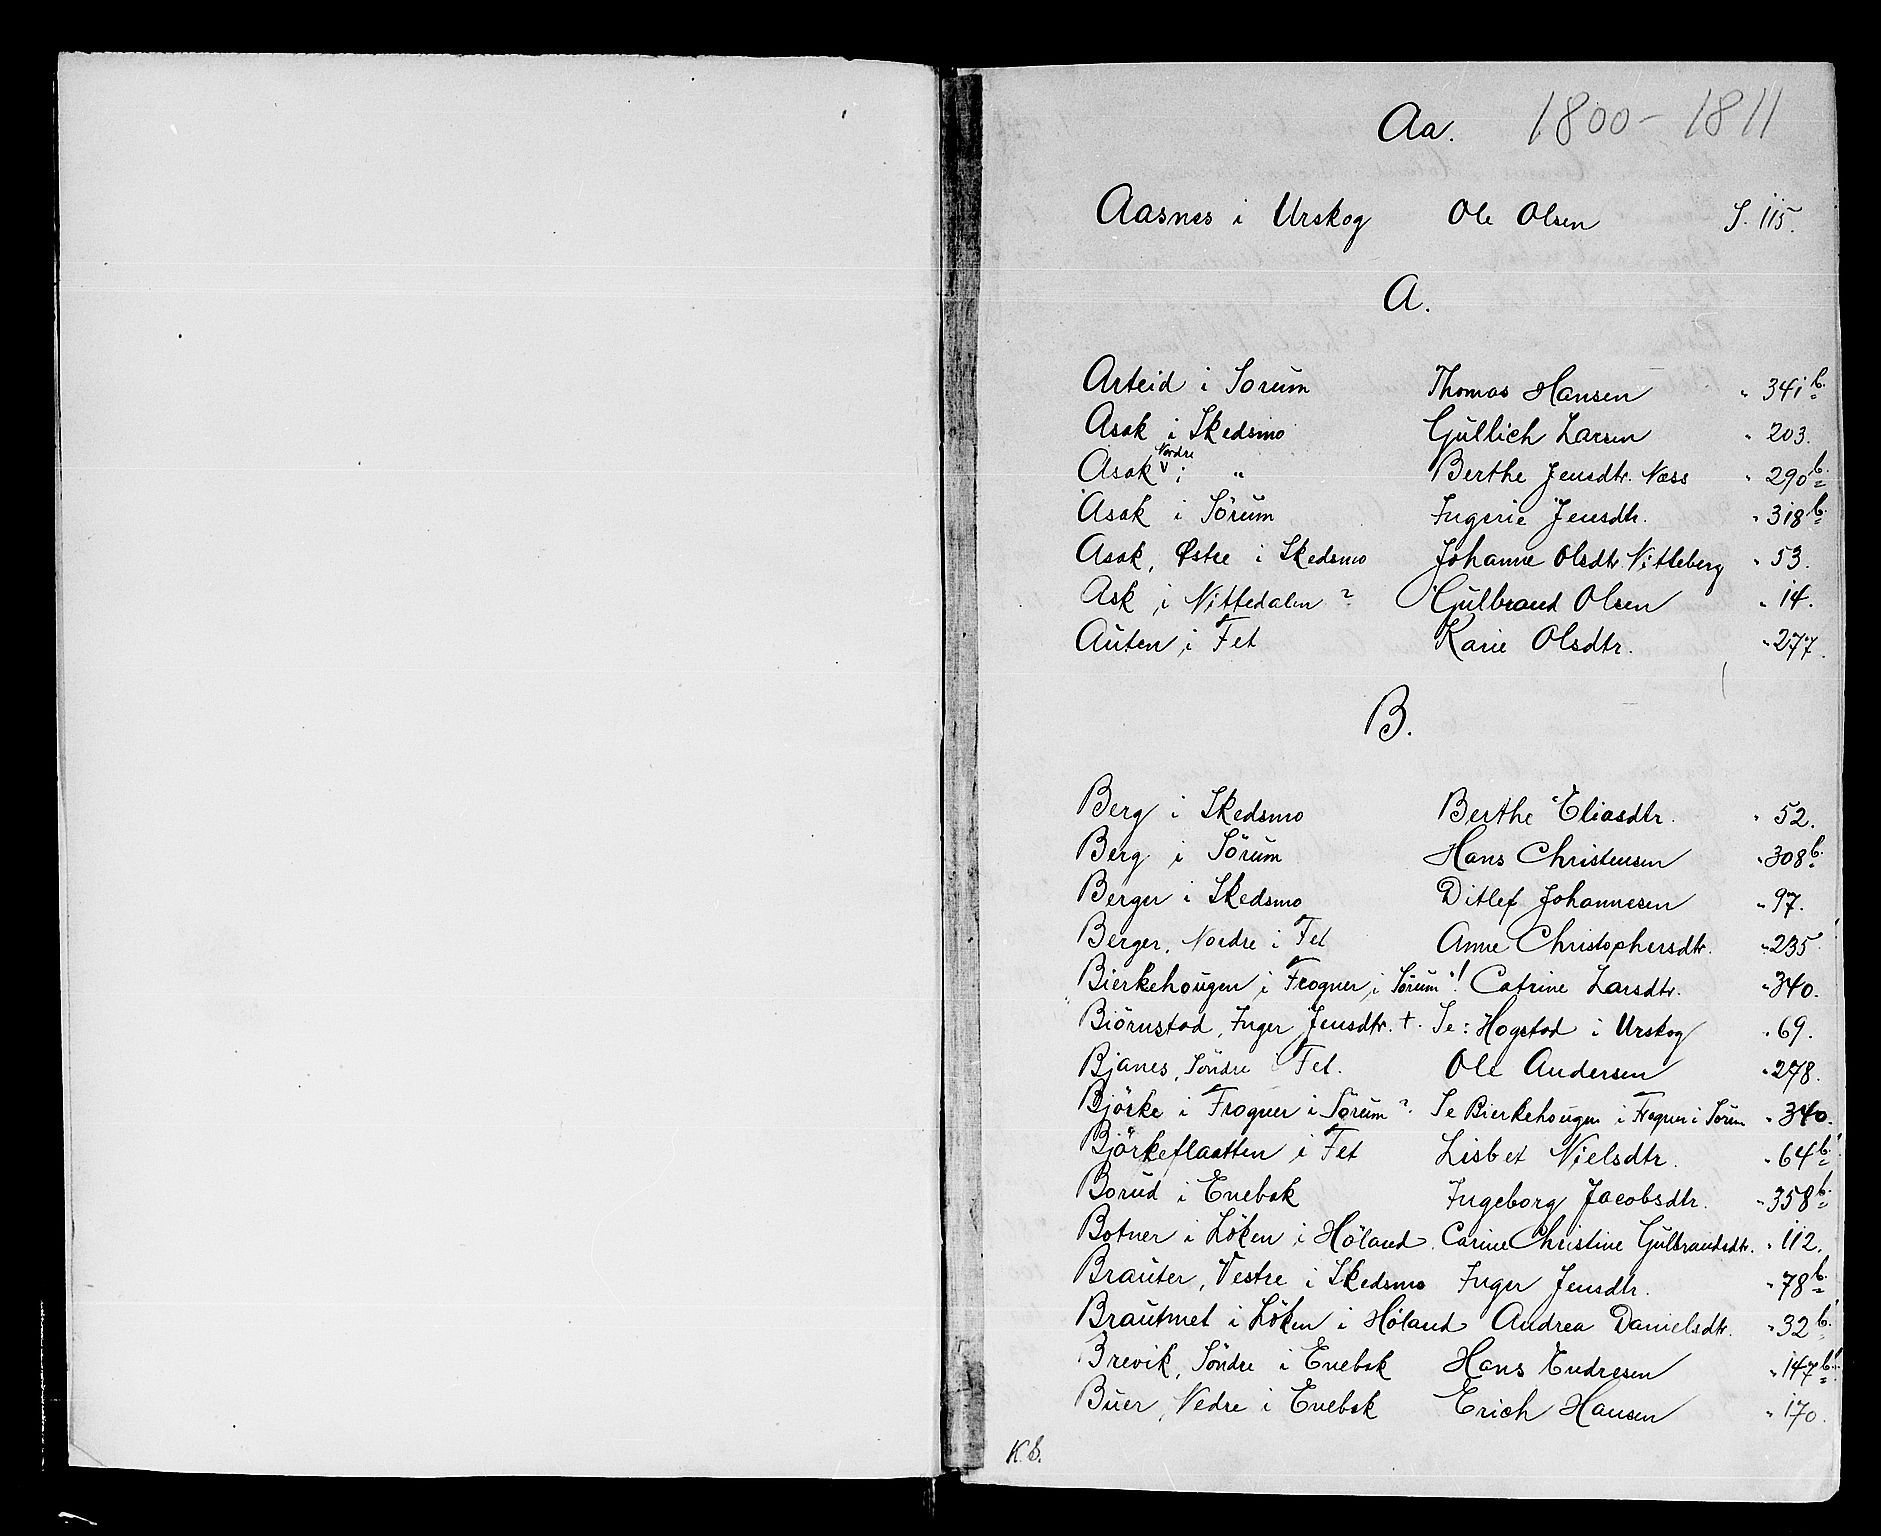 Aa. 1800-1811
Aasnes i Urskog Ole Olsen S. 115.
A.
Arteid i Sorum Thomas Hansen " 341 b.
Asak i Skedsmo Gullich Larsen " 203.
Asak Nordre i " Berthe Jensdtr. Næss " 290 b.
Asak i Sörum Ingerie Jensdtr. " 318 b.
Asak, Østre i Skedsmo Johanne Olsdtr. Nitteberg " 53.
Ask i Nittedalen ? Gulbrand Olsen " 14.
Auten i Fet Karie Olsdtr. " 277.
B.
Berg i Skedsmo Berthe Eliasdtr. " 52.
Berg i Sörum Hans Christensen " 308 b.
Berger i Skedsmo Ditlef Johannesen " 97.
Berger, Nordre i Fet Anne Christophersdtr. " 235
Bierkehougen i Frogner i Sörum ! Catrine Larsdtr. " 340.
Biörnstad, Inger Jensdtr. +. Se: Hogstad i Urskog " 69.
Bjanes, Söndre i Fet. Ole Andersen " 278.
Björke i Frogner i Sörum ? Se Bierkehougen i Frogner i Sorum " 340.
Björkeflaatten i Fet Lisbet Nielsdtr. " 64 b.
Borud i Enebak Ingeborg Jacobsdtr. " 358 b.
Botner i Löken i Höland. Carine Christine Gulbrandsdtr. " 112.
Brauter, Vestre i Skedsmo Inger Jensdtr. " 78 b.
Brautmet i Löken i Höland Andrea Danielsdtr. " 32 b.
Brevik, Söndre i Enebak Hans Endresen " 147 b.
Buer, Nedre i Enebak Erich Hansen " 170.
K. b.